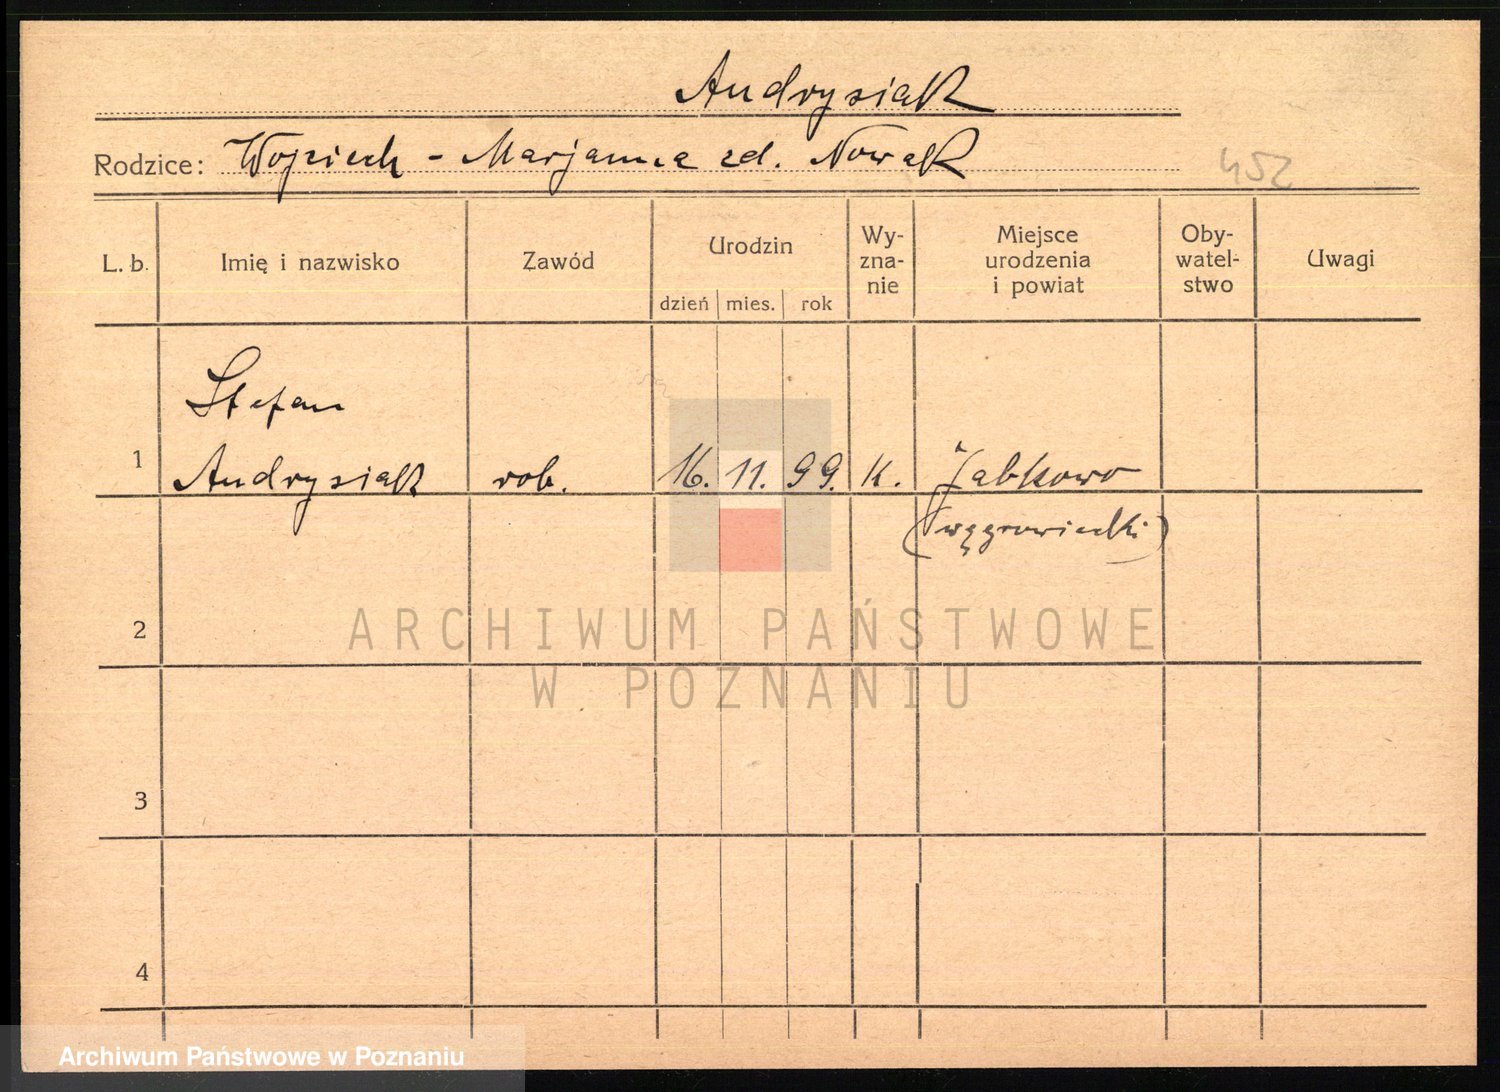 Andrysiak
Rodzice: Wojciech - Marjanna zd. Nowak
452
L. b. Imię i nazwisko Zawód Urodzin dzień mies. rok Wy- zna- nie Miejsce urodzenia i powiat Oby- watel- stwo Uwagi
Stefan
1 Andrysiak rob. 16. 11. 99. k. Jabkowo
(wągrowiecki)
2
ARCHIWUM PAŃSTWOWE
W POZNANIU
3
4
Archiwum Państwowe w Poznaniu